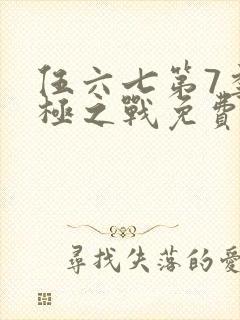 伍六七第7季
極之戰免費
尋找失落的愛